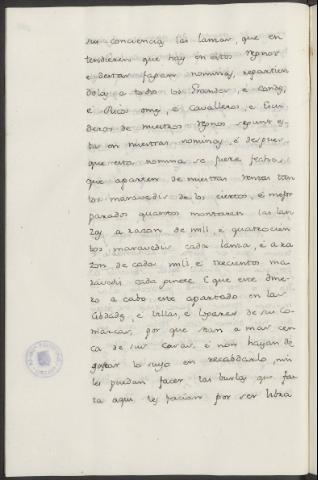 su conciencia las lanzas, que en
tendieren que hay en estos regnos
e destar fagan nominas, repartien
dolas a todos los Grandes, e condes,
e Ricos omes, e Cavalleros, e Escu
deros de nuestros regnos segunt es
ta en nuestras nominas, e despues
que esta nomina se fuere fecha,
que aparten de nuestras rentas tan
tos maravedis de los ciertos, e mejor
parados quantos montaren las lan
zas, a razon de mill, e quatrocien
tos maravedis cada lanza, e a ra
zon de cada mill, e trecientos ma
ravedis cada ginete. E que este dine
ro a cabo este apartado en las
Cibdades, e Villas, e Logares de sus co
marcas, por que sean a mas cer
ca de sus casas, e non hayan de
gastar lo suyo en recabdarlo, nin
les puedan facer las burlas que fas
ta aqui les facian por ser libra